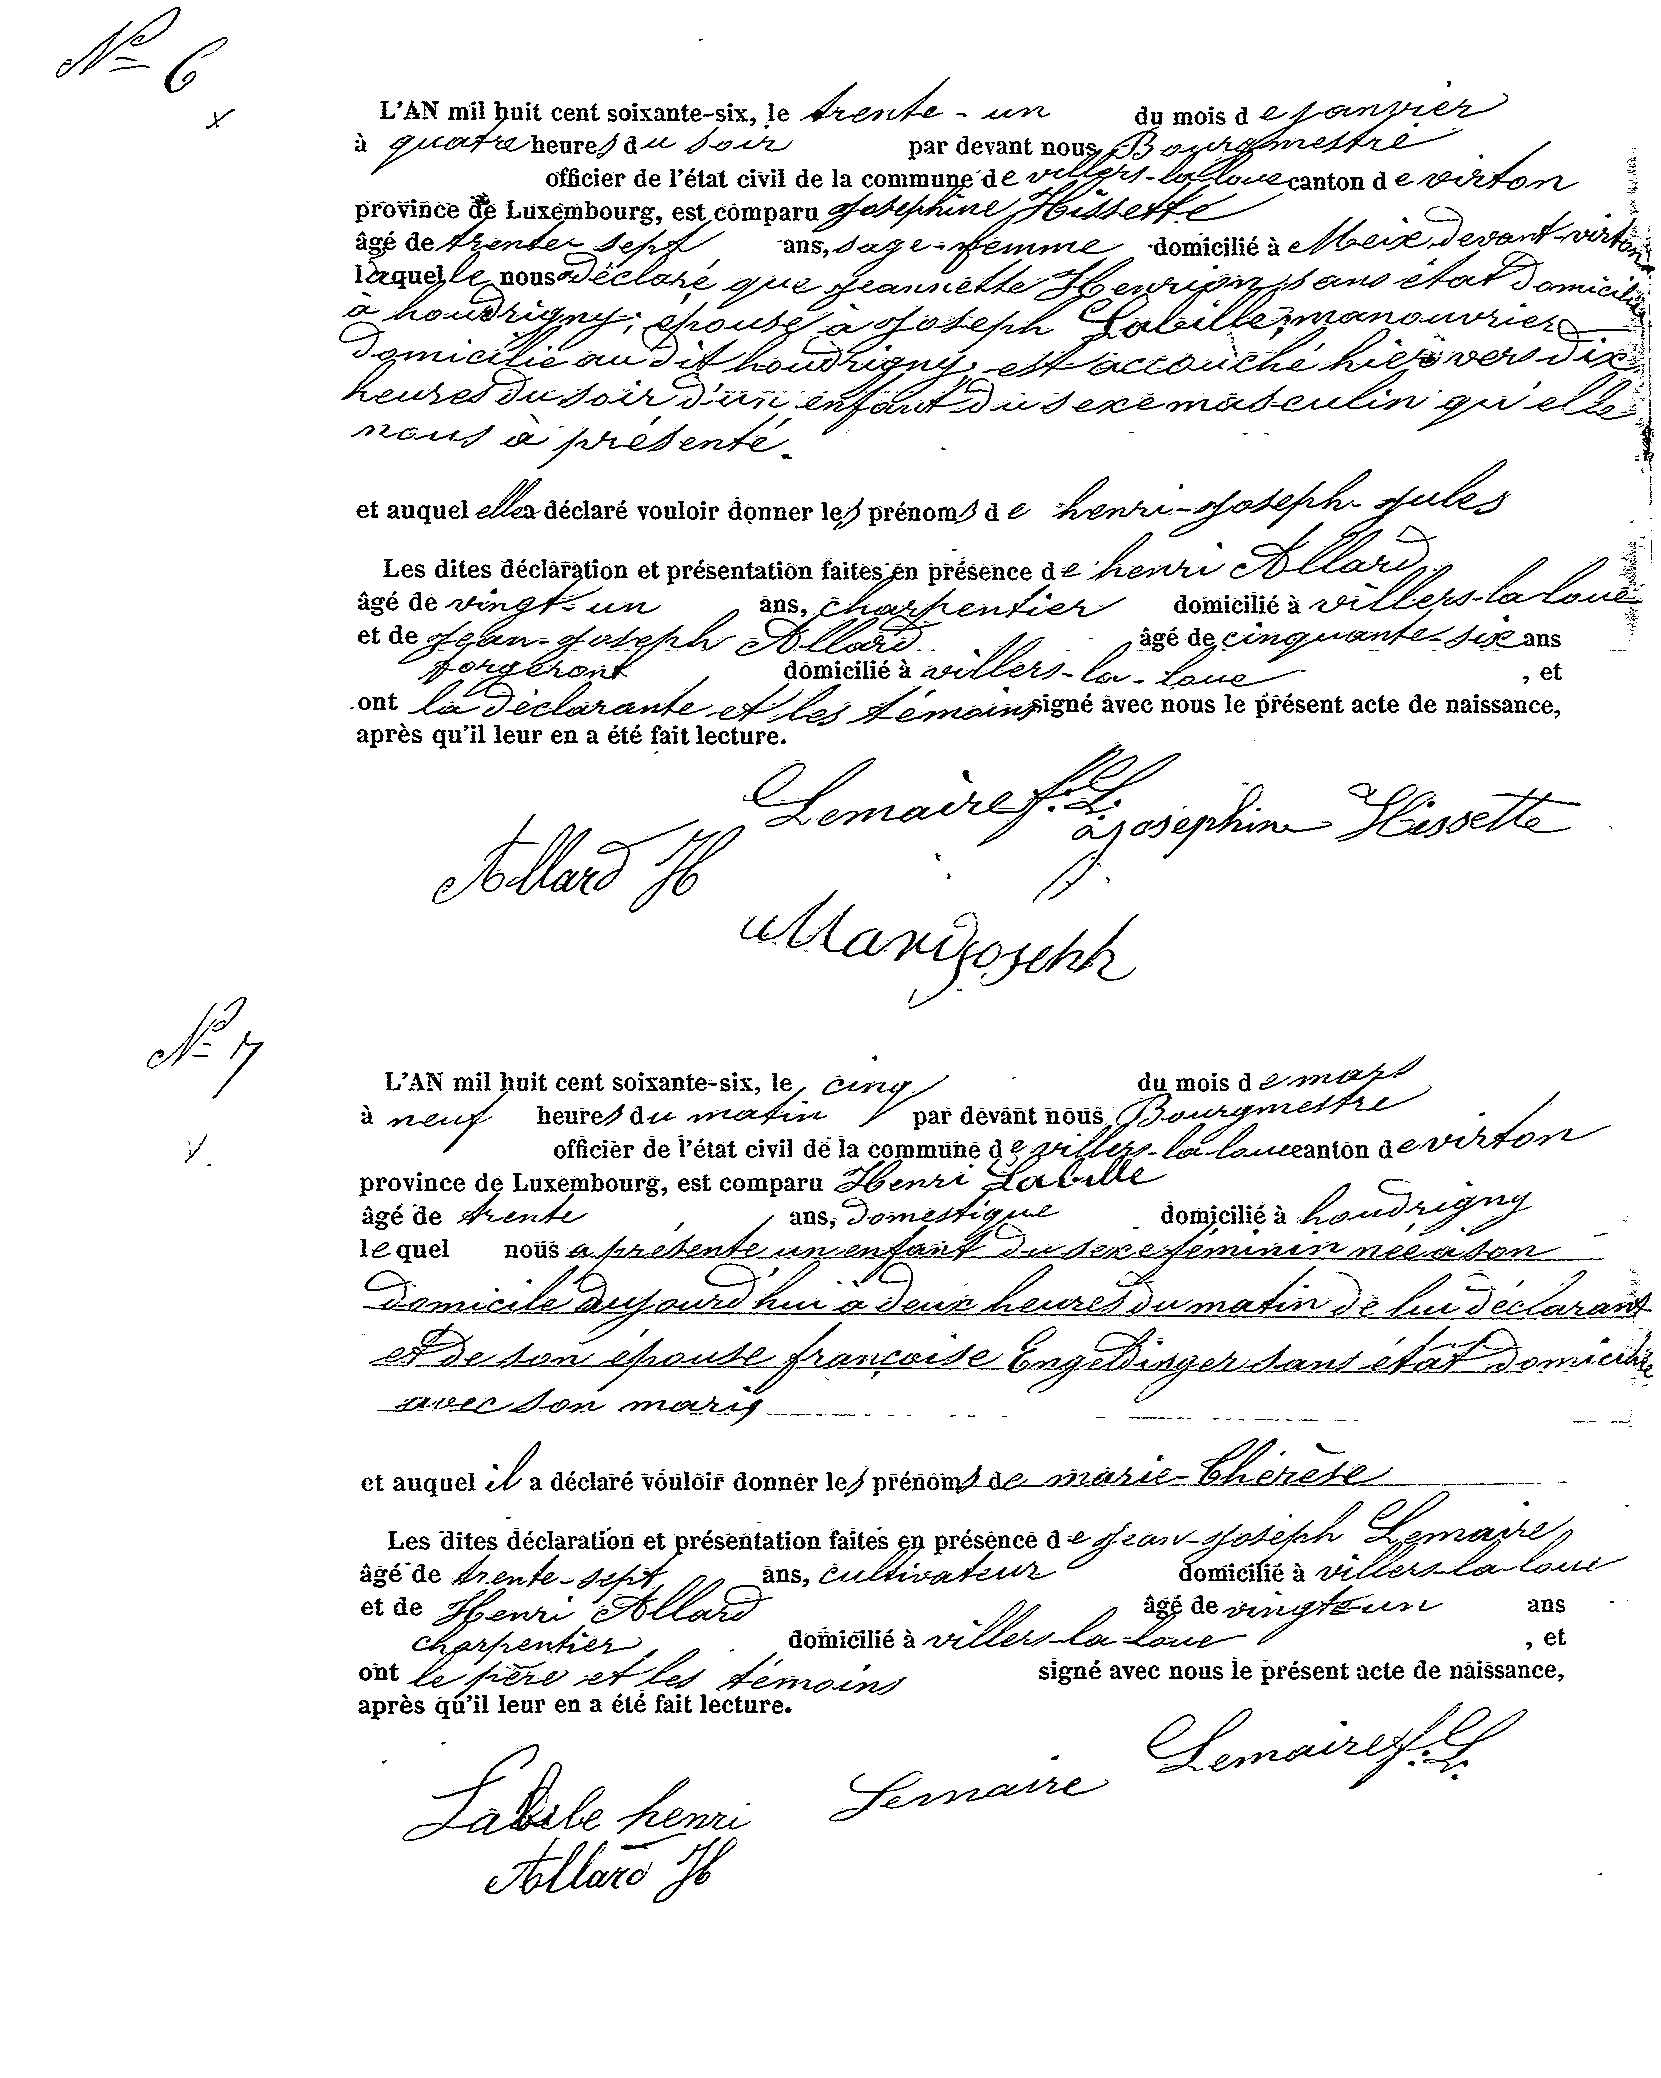 N° 6
x
L'AN mil huit cent soixante-six, le trente-un du mois de janvier
à quatre heures du soir par devant nous Bourgmestre
officier de l'état civil de la commune de villers-la-loue canton de virton
province de Luxembourg, est comparu Josephine Hissette
âgé de trente-sept ans, sage-femme domicilié à Meix devant-virton
laquelle nous a déclaré que jeannette Henrion, sans état domiciliée
à houdrigny, épouse à Joseph Labille, manouvrier
domicilié au dit houdrigny, est accouché hier vers dix
heures du soir d'un enfant du sexe masculin qu'elle
nous à présenté.
et auquel elle a déclaré vouloir donner les prénoms de henri-Joseph-Jules
Les dites déclaration et présentation faites en présence de henri Allard
âgé de vingt-un ans, charpentier domicilié à villers-la loue
et de Jean-Joseph Allard âgé de cinquante-six ans
forgeront domicilié à villers-la-loue , et
ont la déclarante et les témoins signé avec nous le présent acte de naissance,
après qu'il leur en a été fait lecture.
Lemaire f. L.
Josephine Hissette
Allard H
allard joseph
N° 7
L'AN mil huit cent soixante-six, le cinq du mois de mars
à neuf heures du matin par devant nous Bourgmestre
officier de l'état civil de la commune de villers-la loue canton de virton
province de Luxembourg, est comparu Henri Labille
âgé de trente ans, domestique domicilié à houdrigny
lequel nous a présenté un enfant du sexe féminin née à son
domicile aujourd'hui à deux heures du matin de lui déclarant
et de son épouse françoise Engeldinger sans état domiciliée
avec son mari,
et auquel il a déclaré vouloir donner les prénoms de marie-Thérèse
Les dites déclaration et présentation faites en présence de Jean-Joseph Lemaire,
âgé de trente-sept ans, cultivateur domicilié à villers-la-loue
et de Henri Allard âgé de vingt-un ans
charpentier domicilié à villers-la-loue , et
ont le père et les témoins signé avec nous le présent acte de naissance,
après qu'il leur en a été fait lecture.
Lemaire f. L.
Labile henri Lemaire
Allard H